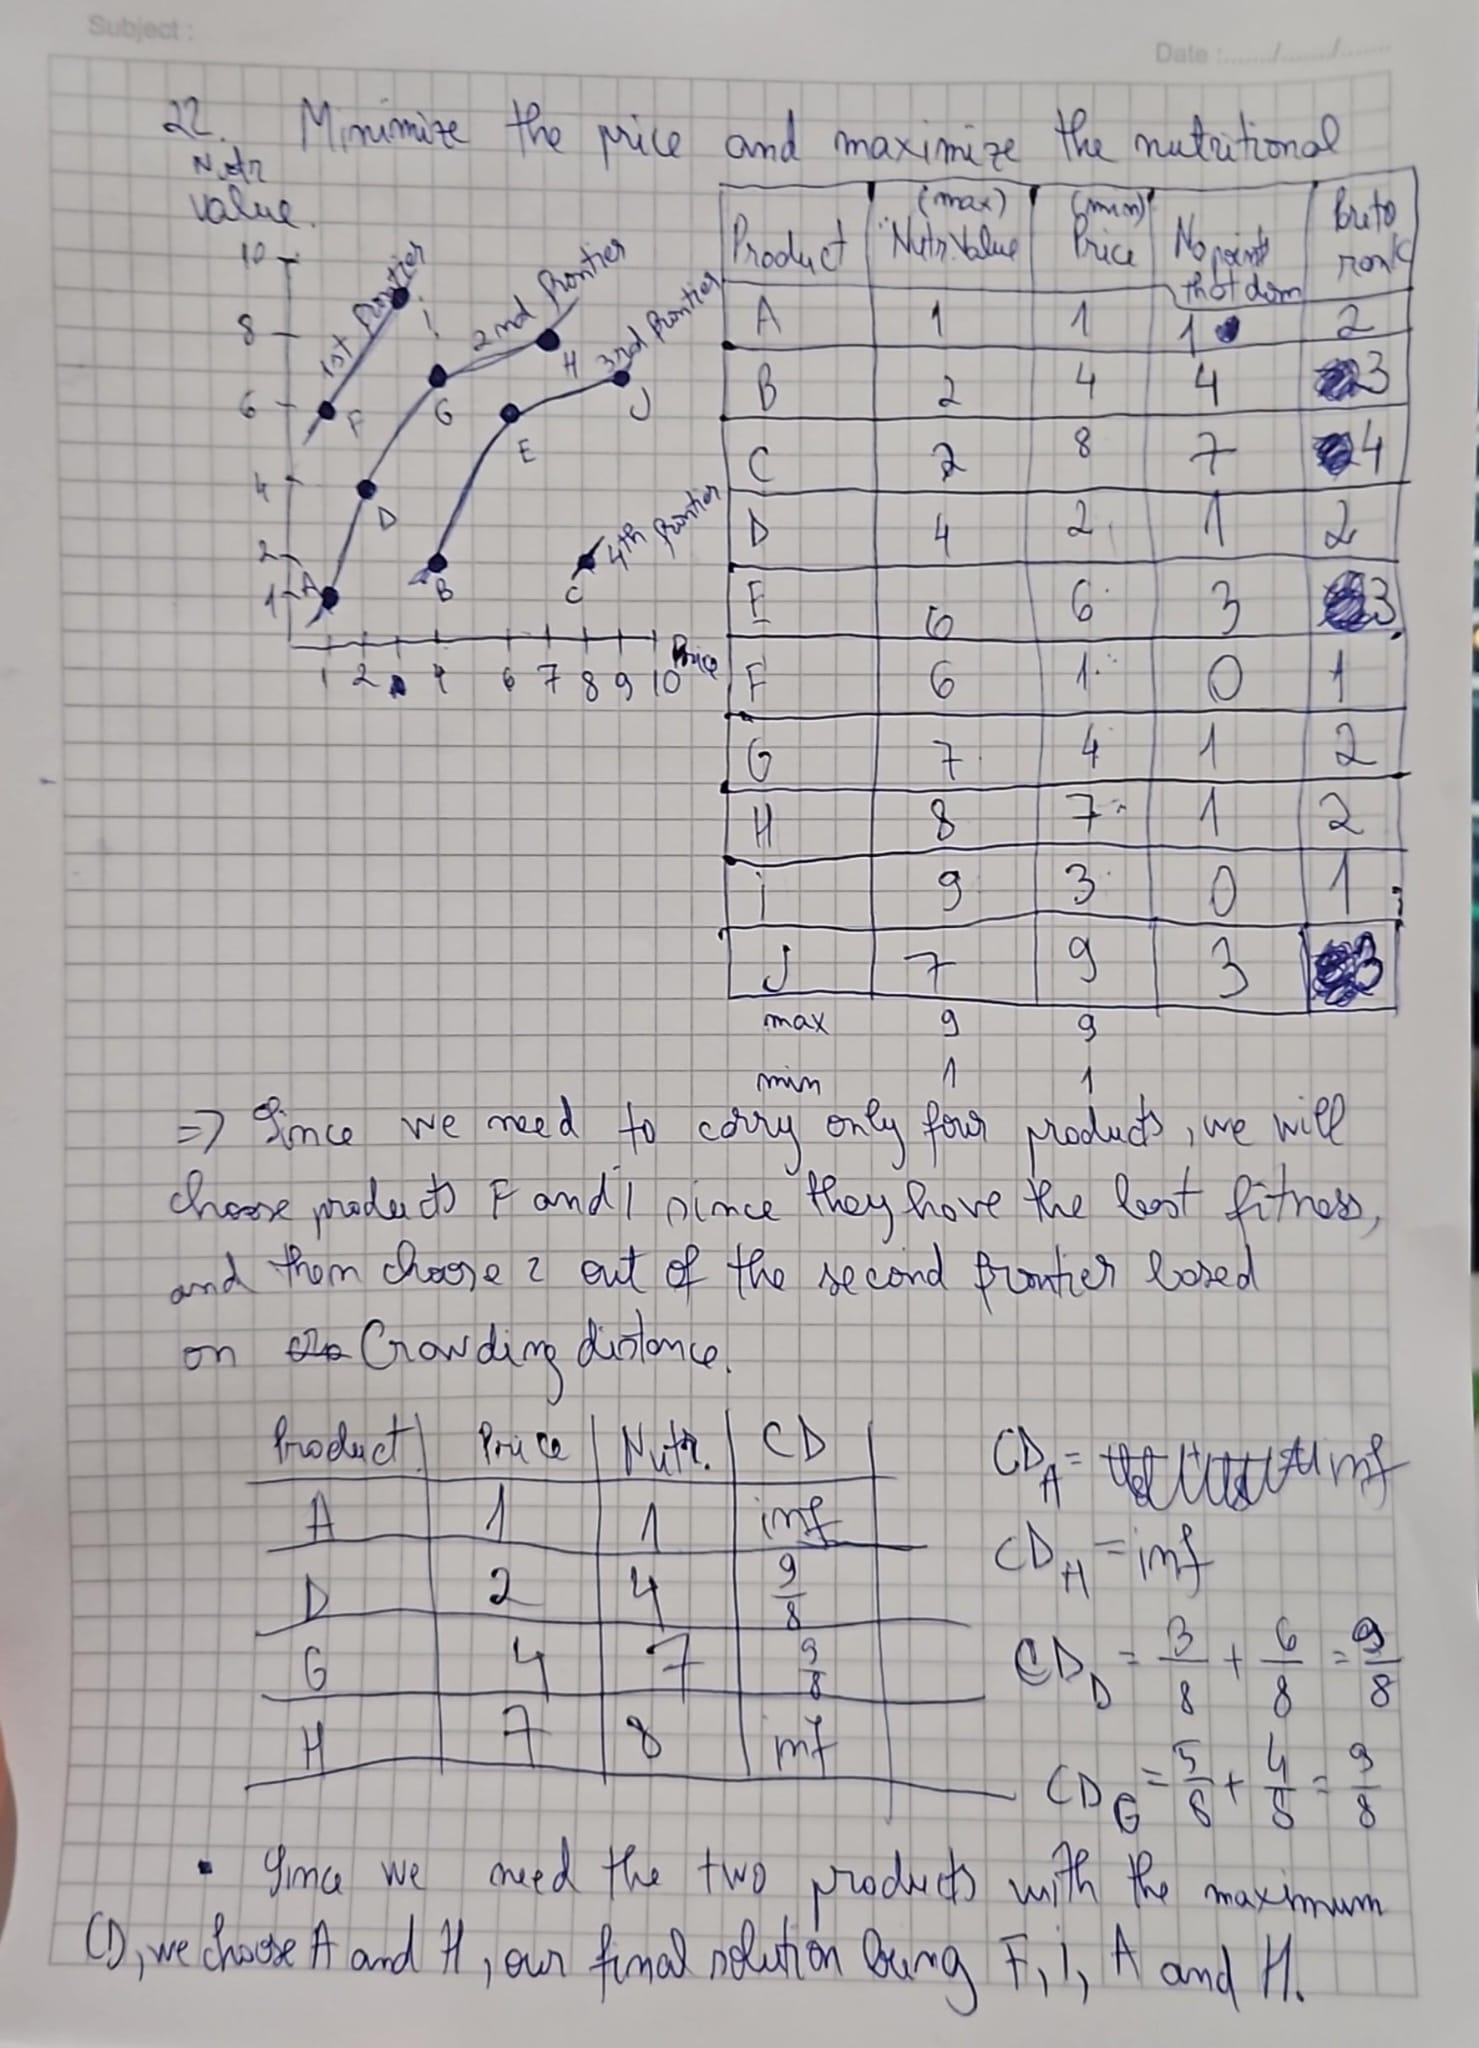 Subject :
Date :....../....../......
22. Minimize the price and maximize the nutritional
Nutr
value.
10
8
6
4
2
1
1st frontier
2nd frontier
3rd frontier
4th frontier
I
F
G
H
J
E
D
A
B
C
1 2 4 6 7 8 9 10 Price
Product (max) Nutr. Value (min) Price No points that dom rank
A 1 1 1 2
B 2 4 4 3
C 2 8 7 4
D 4 2 1 2
E 6 6 3 3
F 6 1 0 1
G 7 4 1 2
H 8 7 1 2
i 9 3 0 1
J 7 9 3 3
max 9 9
min 1 1
=> Since we need to carry only four products, we will
choose products F and I since they have the best fitness,
and then choose 2 out of the second frontier based
on Crowding distance.
Product Price Nutr. CD
A 1 1 inf
D 2 4 9/8
G 4 7 9/8
H 7 8 inf
CD_A = inf
CD_H = inf
CD_D = 3/8 + 6/8 = 9/8
CD_G = 5/8 + 4/8 = 9/8
• Since we need the two products with the maximum
CD, we choose A and H, our final solution being F, i, A and H.